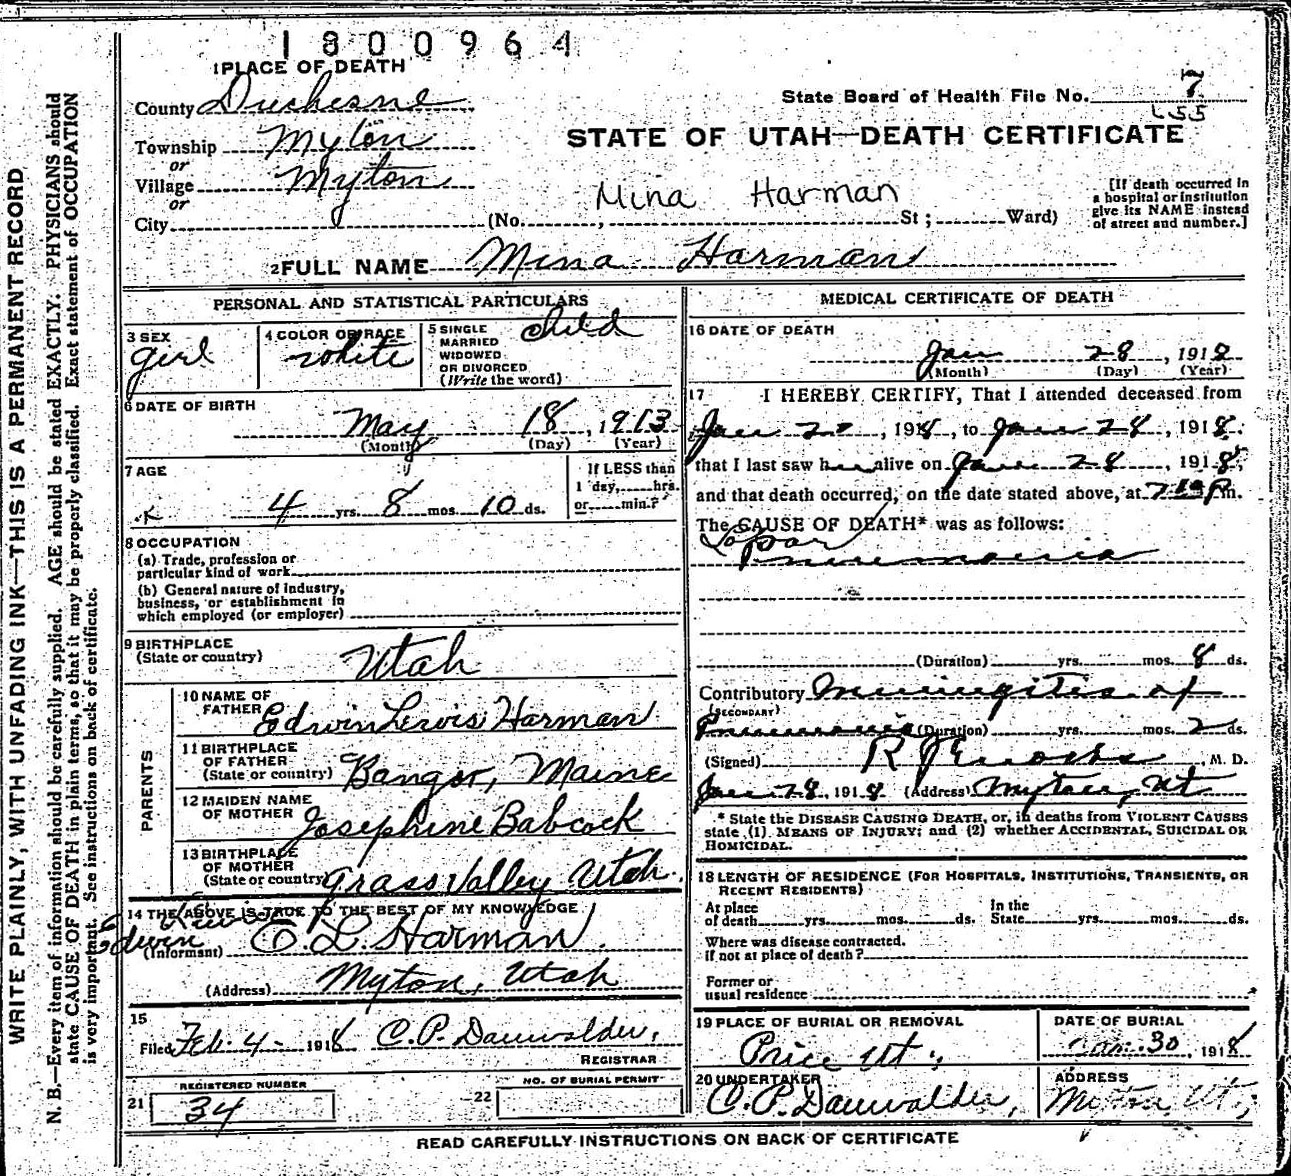 1800964
1 PLACE OF DEATH
County Duchesne
State Board of Health File No. 7
Township Myton
STATE OF UTAH—DEATH CERTIFICATE
or
Village Myton
or
Mina Harman
City (No. , St ; Ward)
[If death occurred in
a hospital or institution
give its NAME instead
of street and number.]
2 FULL NAME Mina Harman
PERSONAL AND STATISTICAL PARTICULARS
3 SEX
girl
4 COLOR OR RACE
white
5 SINGLE
MARRIED
WIDOWED
OR DIVORCED
(Write the word)
child
6 DATE OF BIRTH
May 18, 1913
(Month) (Day) (Year)
7 AGE
4 yrs. 8 mos. 10 ds.
If LESS than
1 day, hrs.
or min.?
8 OCCUPATION
(a) Trade, profession or
particular kind of work
(b) General nature of industry,
business, or establishment in
which employed (or employer)
9 BIRTHPLACE
(State or country) Utah
PARENTS
10 NAME OF
FATHER Edwin Lewis Harman
11 BIRTHPLACE
OF FATHER
(State or country) Bangor, Maine
12 MAIDEN NAME
OF MOTHER Josephine Babcock
13 BIRTHPLACE
OF MOTHER
(State or country) Grass Valley Utah.
14 THE ABOVE IS TRUE TO THE BEST OF MY KNOWLEDGE
Edwin Lewis
(Informant) E. L. Harman
(Address) Myton, Utah
15
Filed Feb. 4- 1918 C. P. Dauwalder,
REGISTRAR
REGISTERED NUMBER
21 34
NO. OF BURIAL PERMIT
22
MEDICAL CERTIFICATE OF DEATH
16 DATE OF DEATH
Jan 28, 1918
(Month) (Day) (Year)
17 I HEREBY CERTIFY, That I attended deceased from
Jan , 1918, to Jan 28, 1918.
that I last saw her alive on Jan 28, 1918,
and that death occurred, on the date stated above, at 7 P m.
The CAUSE OF DEATH* was as follows:
Lobar
Pneumonia
(Duration) yrs. mos. 8 ds.
Contributory Meningites of
(SECONDARY)
Pneumonia (Duration) yrs. mos. 2 ds.
(Signed) R J Enochs, M. D.
Jan 28, 1918 (Address) Myton, Ut
* State the DISEASE CAUSING DEATH, or, in deaths from VIOLENT CAUSES
state (1) MEANS OF INJURY; and (2) whether ACCIDENTAL, SUICIDAL OR
HOMICIDAL.
18 LENGTH OF RESIDENCE (FOR HOSPITALS, INSTITUTIONS, TRANSIENTS, OR
RECENT RESIDENTS)
At place
of death yrs. mos. ds.
In the
State yrs. mos. ds.
Where was disease contracted.
if not at place of death?
Former or
usual residence
19 PLACE OF BURIAL OR REMOVAL
Price Ut.,
DATE OF BURIAL
Jan. 30, 1918
20 UNDERTAKER
C. P. Dauwalder,
ADDRESS
Myton, Ut.,
READ CAREFULLY INSTRUCTIONS ON BACK OF CERTIFICATE
WRITE PLAINLY, WITH UNFADING INK—THIS IS A PERMANENT RECORD
N. B.—Every item of information should be carefully supplied. AGE should be stated EXACTLY. PHYSICIANS should
state CAUSE OF DEATH in plain terms, so that it may be properly classified. Exact statement of OCCUPATION
is very important. See instructions on back of certificate.